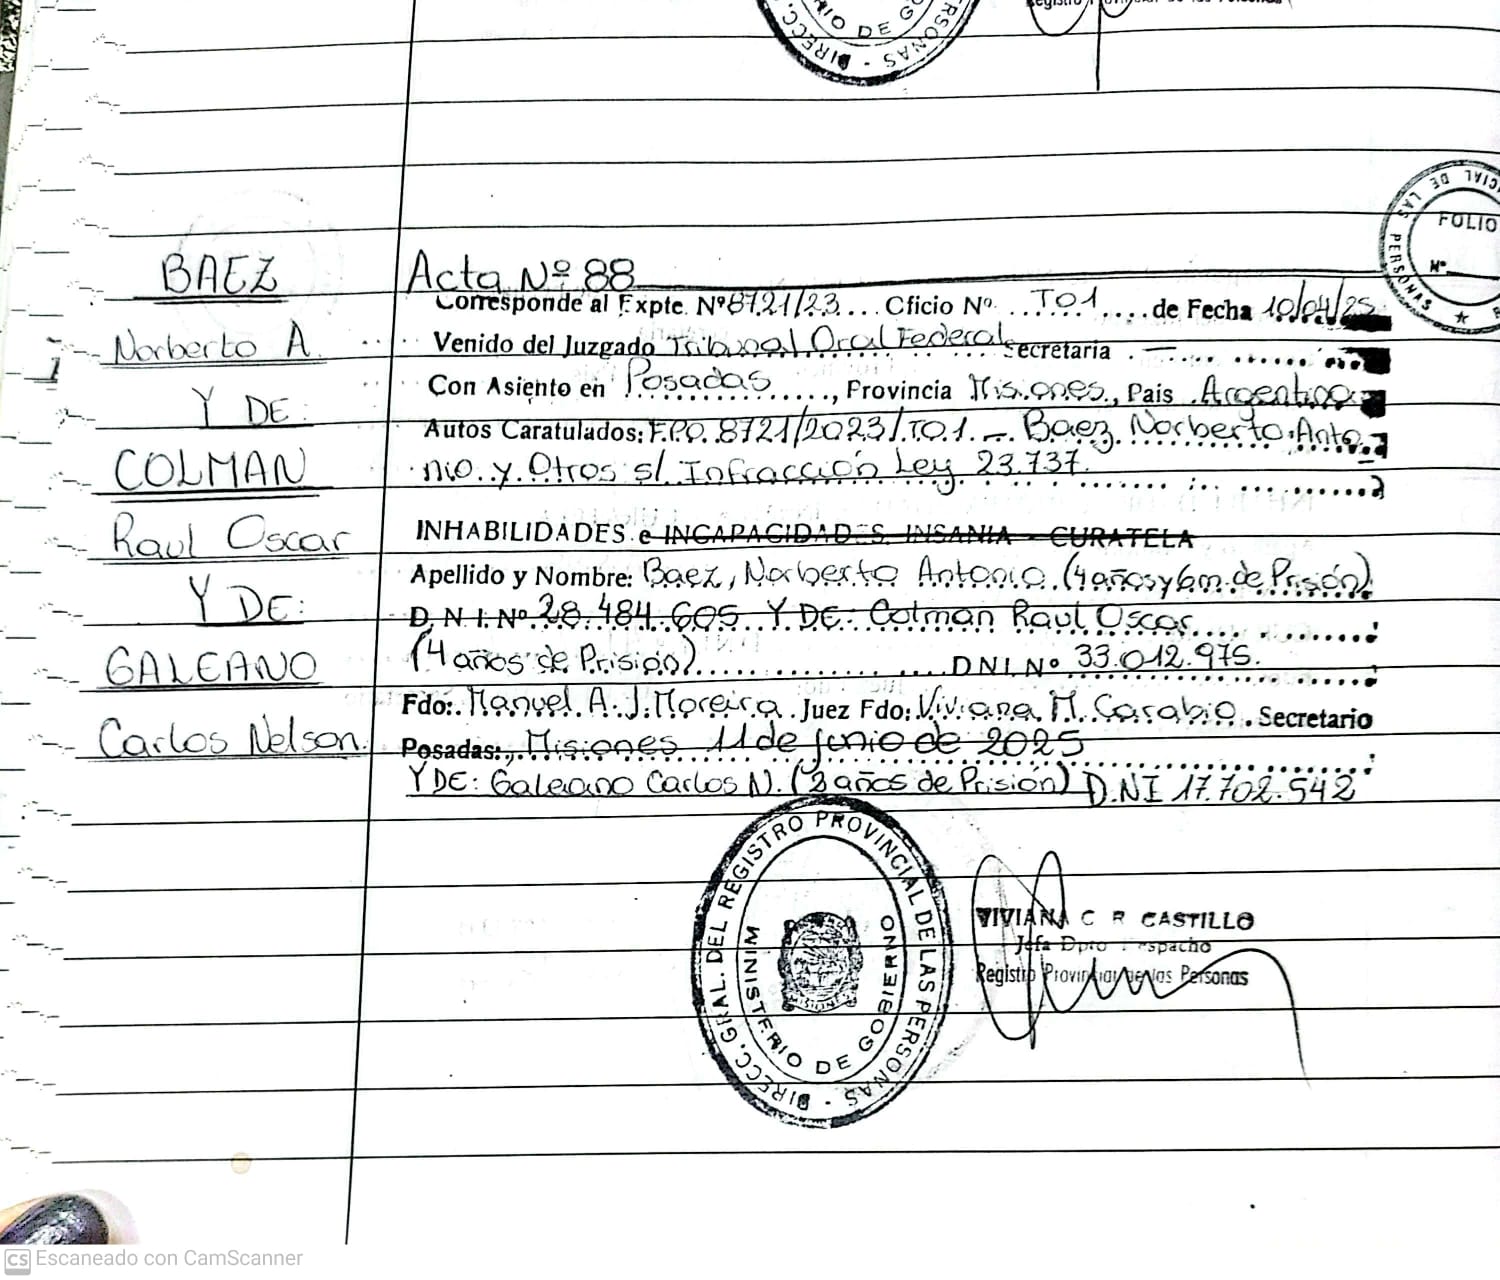 DIRECC. - PERSONAS
RIO DE GO
FOLIO
Nº
CIAL DE LAS PERSONAS
BAEZ
Norberto A.
Y DE:
COLMAN
Raul Oscar
Y DE:
GALEANO
Carlos Nelson.
Acta Nº 88
Corresponde al Expte. Nº 8721/23... Oficio Nº. ...TO1.... de Fecha 10/04/25
Venido del Juzgado Tribunal Oral Federal Secretaria . —
Con Asiento en Posadas, Provincia Misiones, Pais Argentina
Autos Caratulados: F.P.O. 8721/2023/TO1.- Baez Norberto Anto
nio y Otros s/ Infracción Ley 23.737.
INHABILIDADES e INCAPACIDADES INSANIA - CURATELA
Apellido y Nombre: Baez, Norberto Antonio (4 años y 6m. de Prisión)
D.N.I. Nº 28.484.605 Y DE: Colman Raul Oscar
(4 años de Prisión) D.N.I. Nº 33.012.975.
Fdo: Manuel A. J. Moreira. Juez Fdo: Viviana M. Carabio. Secretario
Posadas: Misiones 11 de Junio de 2025
Y DE: Galeano Carlos N. (3 años de Prisión) D.N.I 17.702.542
DIRECC. GRAL. DEL REGISTRO PROVINCIAL DE LAS PERSONAS -
MINISTERIO DE GOBIERNO
MISIONES
VIVIANA C R CASTILLO
Jefa Dpto Despacho
Registro Provincial de las Personas
CS Escaneado con CamScanner